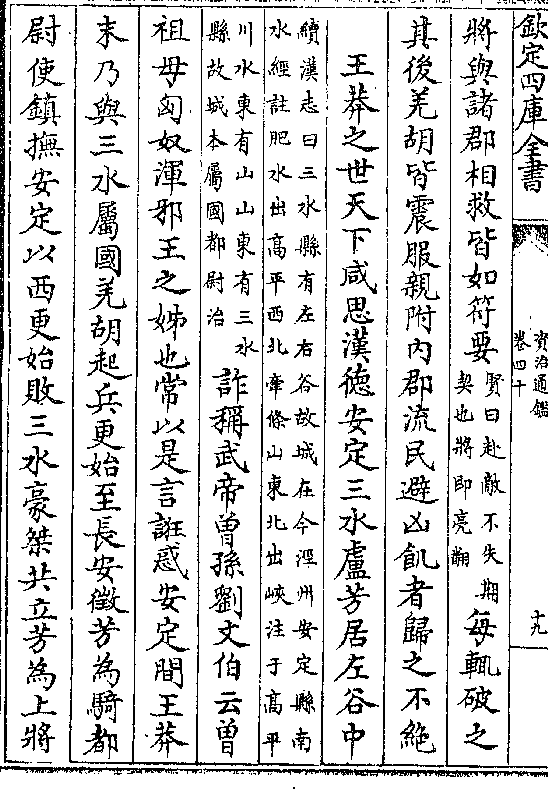 欽定四庫全書
資治通鑑
卷四十
十九
將與諸郡相救皆如符要
賢曰赴敵不失期
契也將即亮翻
每輒破之
其後羌胡皆震服親附內郡流民避凶飢者歸之不絶
王莽之世天下咸思漢徳安定三水盧芳居左谷中
續漢志曰三水縣有左右谷故城在今涇州安定縣南
水經註肥水出高平西北牽條山東北出峽注于高平
川水東有山山東有三水
縣故城本屬國都尉治
詐稱武帝曾孫劉文伯云曾
祖母匈奴渾邪王之姊也常以是言誑惑安定間王莽
末乃與三水屬國羌胡起兵更始至長安徵芳為騎都
尉使鎮撫安定以西更始敗三水豪桀共立芳為上將